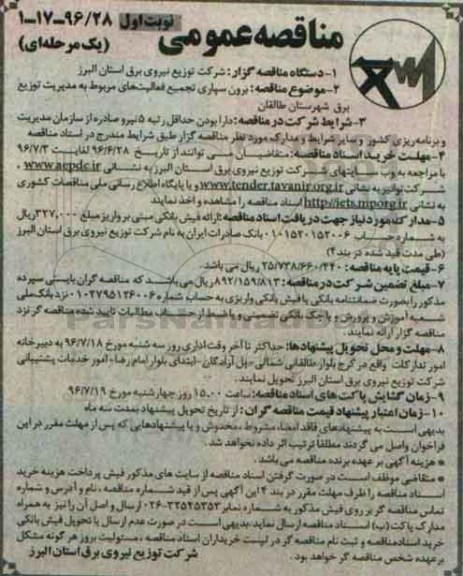 نوبت اول ۹۶/۲۸-۱۷-۱
مناقصه عمومی (یک مرحله‌ای)
۱- دستگاه مناقصه گزار: شرکت توزیع نیروی برق استان البرز
۲- موضوع مناقصه: برون سپاری تجمیع فعالیت‌های مربوط به مدیریت توزیع
برق شهرستان طالقان
۳- شرایط شرکت در مناقصه: دارا بودن حداقل رتبه ۵ نیرو صادره از سازمان مدیریت
و برنامه‌ریزی کشور و سایر شرایط و مدارک مورد نظر مناقصه گزار طبق شرایط مندرج در اسناد مناقصه
۴- مهلت خرید اسناد مناقصه: متقاضیان می توانند از تاریخ ۹۶/۶/۲۸ لغایت ۹۶/۷/۳
با مراجعه به وب سایتهای شرکت توزیع نیروی برق استان البرز به نشانی www.aepdc.ir،
شرکت توانیر به نشانی www.tender.tavanir.org.ir و یا پایگاه اطلاع رسانی ملی مناقصات کشوری
به نشانی http://iets.mporg.ir اسناد مناقصه را مشاهده و اخذ نمایند
۵- مدارک مورد نیاز جهت دریافت اسناد مناقصه: ارائه فیش بانکی مبنی بر واریز مبلغ ۳۲۷,۰۰۰ ریال
به شماره حساب ۰۱۰۱۵۲۰۱۵۲۰۰۶ بانک صادرات ایران به نام شرکت توزیع نیروی برق استان البرز
(طی مدت قید شده در بند ۴)
۶- قیمت پایه مناقصه: ۲۵/۷۳۸/۶۶۰/۴۴۰ ریال می باشد.
۷- مبلغ تضمین شرکت در مناقصه: ۸۹۲/۱۵۹/۸۱۳ ریال می باشد که مناقصه گران بایستی سپرده
مذکور را بصورت ضمانتنامه بانکی یا فیش بانکی واریزی به حساب شماره ۰۱۰۲۷۹۵۱۲۶۰۰۶ نزد بانک ملی
شعبه آموزش و پرورش و یا چک بانکی تضمینی و یا ضبط از حساب مطالبات تایید شده مناقصه گر نزد
مناقصه گزار ارائه نمایند.
۸- مهلت و محل تحویل پیشنهادها: حداکثر تا آخر وقت اداری روز سه شنبه مورخ ۹۶/۷/۱۸ به دبیرخانه
امور تدارکات واقع در کرج بلوار طالقانی شمالی - پل آزادگان - ابتدای بلوار امام رضا - امور خدمات پشتیبانی
شرکت توزیع نیروی برق استان البرز تحویل نمایند.
۹- زمان گشایش پاکت های اسناد مناقصه: ساعت ۱۵.۰۰ روز چهارشنبه مورخ ۹۶/۷/۱۹
۱۰- زمان اعتبار پیشنهاد قیمت مناقصه گران: از تاریخ تحویل پیشنهاد بمدت سه ماه
بدیهی است به پیشنهادهای فاقد امضاء، مشروط، مخدوش و یا پیشنهادهایی که پس از مهلت مقرر در این
فراخوان واصل می گردند مطلقا ترتیب اثر داده نخواهد شد.
* هزینه آگهی بر عهده برنده مناقصه می باشد.
* متقاضی موظف است در صورت گرفتن اسناد مناقصه از سایت های مذکور فیش پرداخت هزینه خرید
اسناد مناقصه را ظرف مهلت مقرر در بند ۴ این آگهی پس از قید شماره مناقصه، نام و آدرس و شماره
تماس مناقصه گر بر روی فیش مذکور به شماره نمابر ۳۲۵۴۵۳۵۳-۰۲۶ ارسال و اصل آن را نیز به همراه
مدارک پاکت (ب) اسناد مناقصه ارسال نماید. بدیهی است در صورت عدم ارسال یا تحویل فیش بانکی
خرید اسناد مناقصه و ثبت نام مناقصه گر در لیست خریداران اسناد مناقصه، مسئولیت بروز هر گونه مشکل
بر عهده شخص مناقصه گر خواهد بود.
شرکت توزیع نیروی برق استان البرز